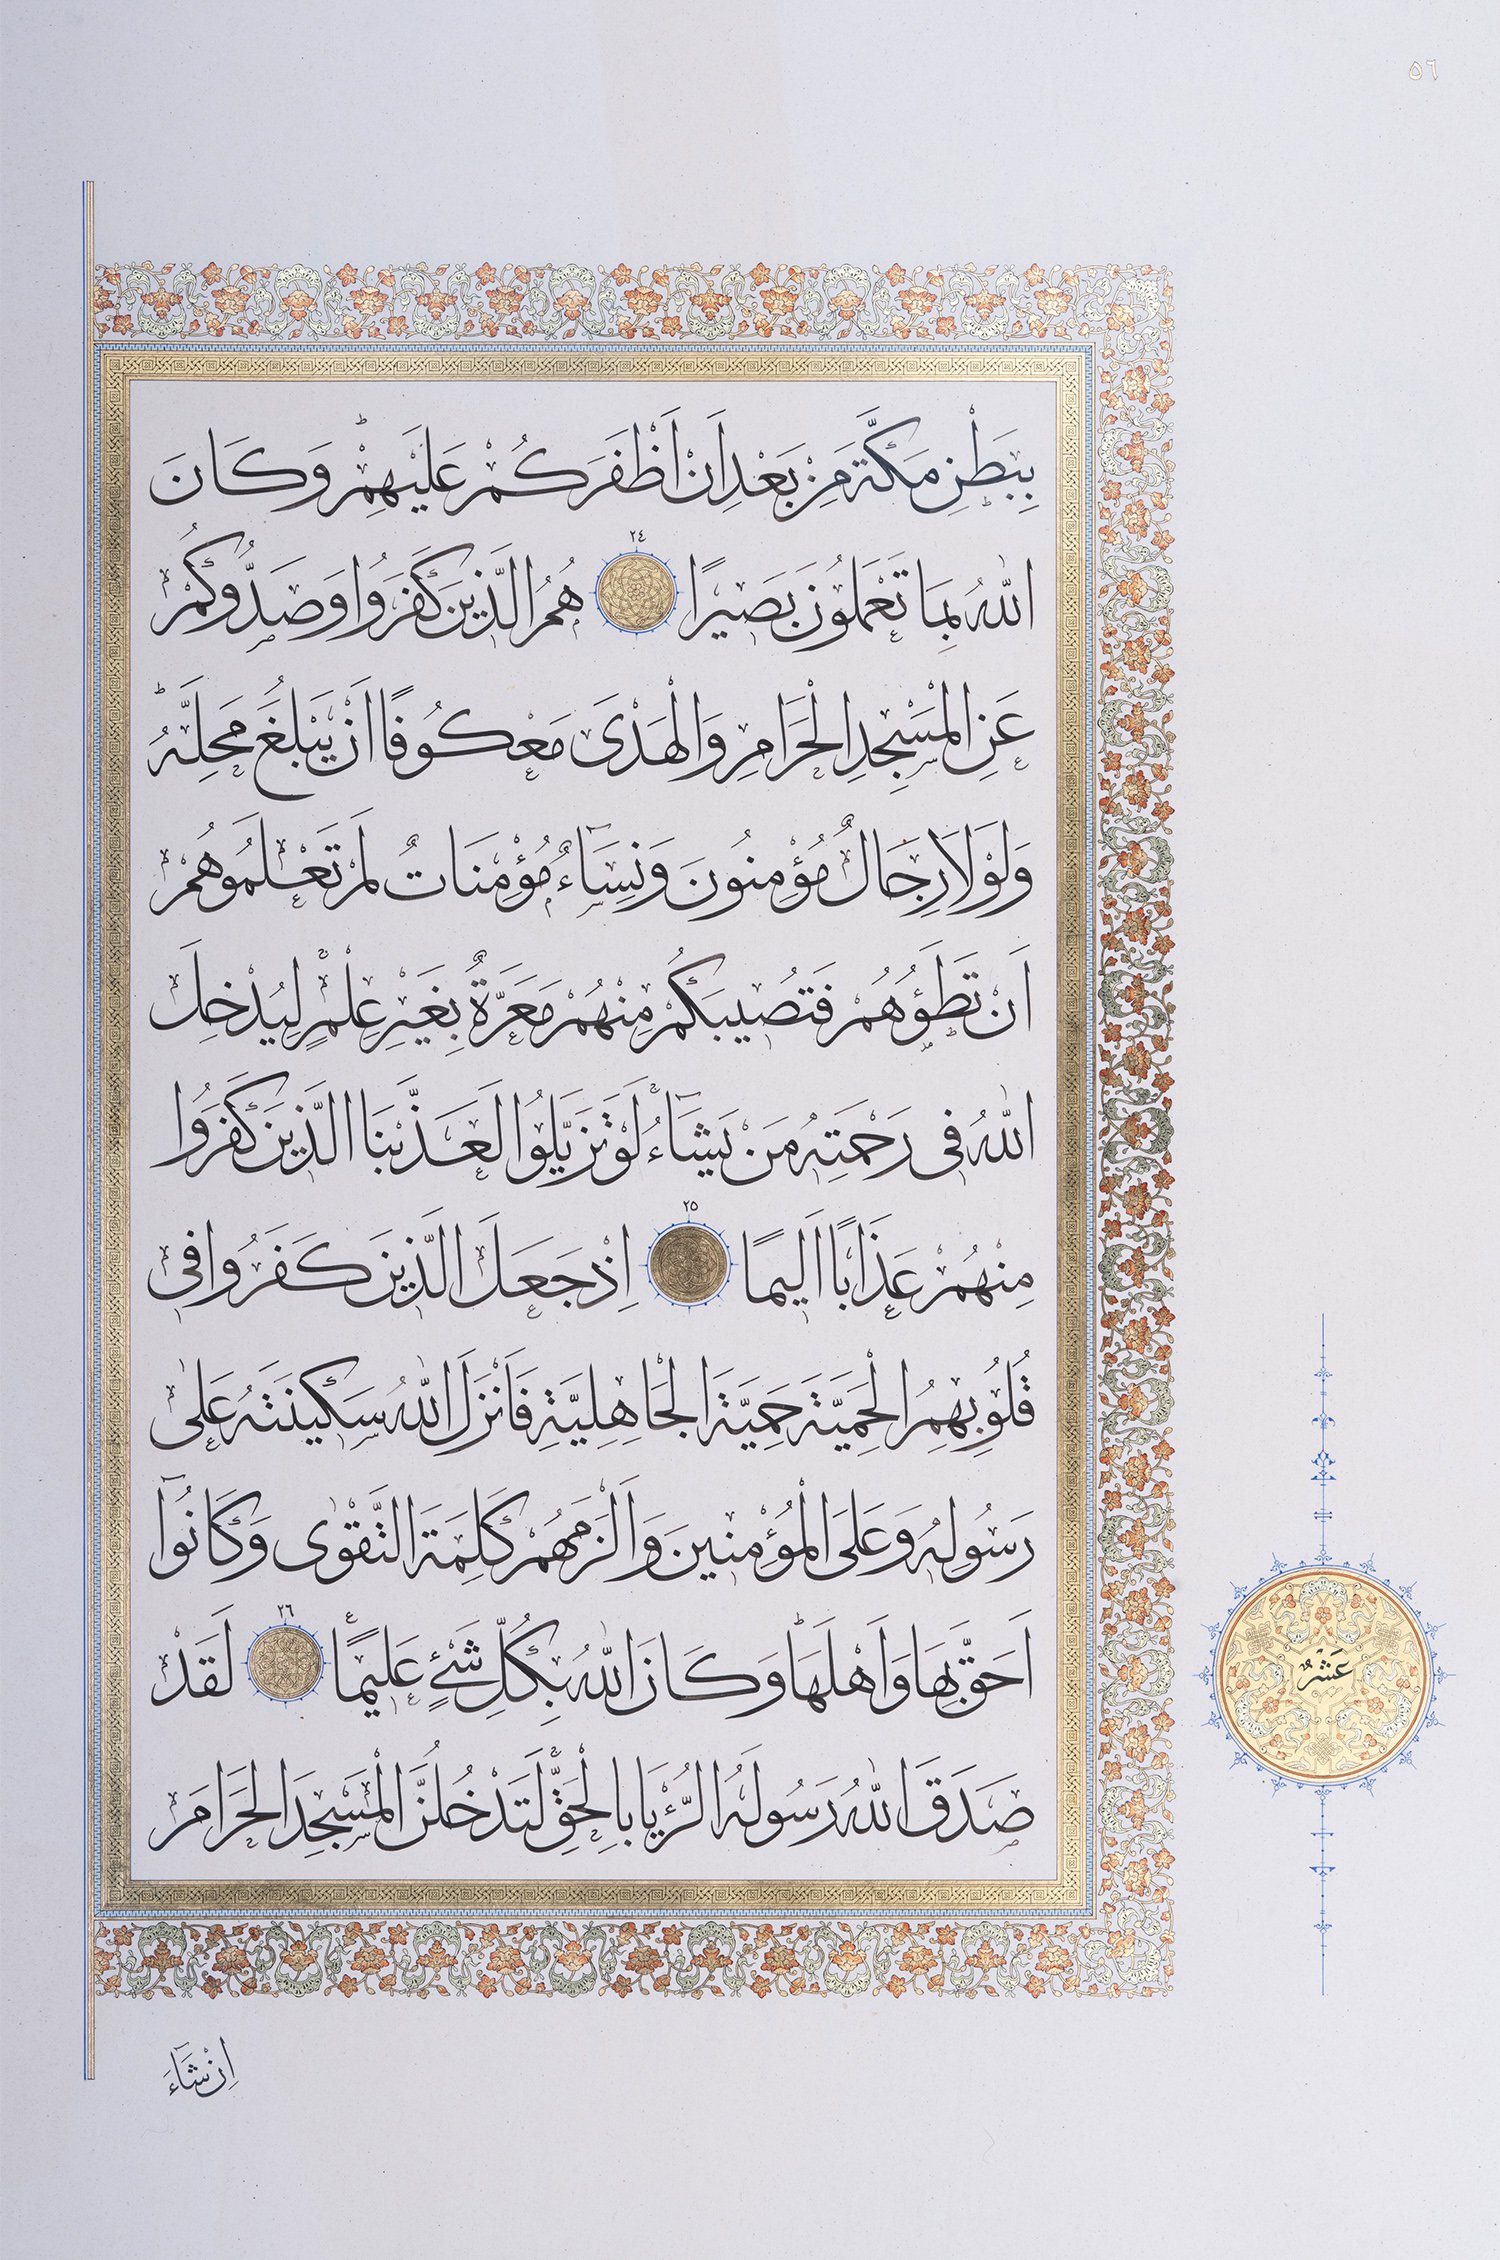 ٥٦
بِبَطْنِ مَكَّةَ مِنْ بَعْدِ اَنْ اَظْفَرَكُمْ عَلَيْهِمْ ۜ وَكَانَ
اللّٰهُ بِمَا تَعْمَلُونَ بَصِيرًا ٢٤ هُمُ الَّذِينَ كَفَرُوا وَصَدُّوكُمْ
عَنِ الْمَسْجِدِ الْحَرَامِ وَالْهَدْىَ مَعْكُوفًا اَنْ يَبْلُغَ مَحِلَّهُ ۜ
وَلَوْلَا رِجَالٌ مُؤْمِنُونَ وَنِسَٓاءٌ مُؤْمِنَاتٌ لَمْ تَعْلَمُوهُمْ
اَنْ تَطَؤُهُمْ فَتُصِيبَكُمْ مِنْهُمْ مَعَرَّةٌ بِغَيْرِ عِلْمٍ لِيُدْخِلَ
اللّٰهُ فِى رَحْمَتِهِ مَنْ يَشَٓاءُ لَوْ تَزَيَّلُوا لَعَذَّبْنَا الَّذِينَ كَفَرُوا
مِنْهُمْ عَذَابًا اَلِيمًا ٢٥ اِذْ جَعَلَ الَّذِينَ كَفَرُوا فِى
قُلُوبِهِمُ الْحَمِيَّةَ حَمِيَّةَ الْجَاهِلِيَّةِ فَاَنْزَلَ اللّٰهُ سَكِينَتَهُ عَلٰى
رَسُولِهِ وَعَلَى الْمُؤْمِنِينَ وَاَلْزَمَهُمْ كَلِمَةَ التَّقْوٰى وَكَانُٓوا
اَحَقَّ بِهَا وَاَهْلَهَا ۜ وَكَانَ اللّٰهُ بِكُلِّ شَىْءٍ عَلِيمًا ٢٦ لَقَدْ
صَدَقَ اللّٰهُ رَسُولَهُ الرُّءْيَا بِالْحَقِّ لَتَدْخُلُنَّ الْمَسْجِدَ الْحَرَامَ
عَشْرٌ
اِنْ شَٓاءَ